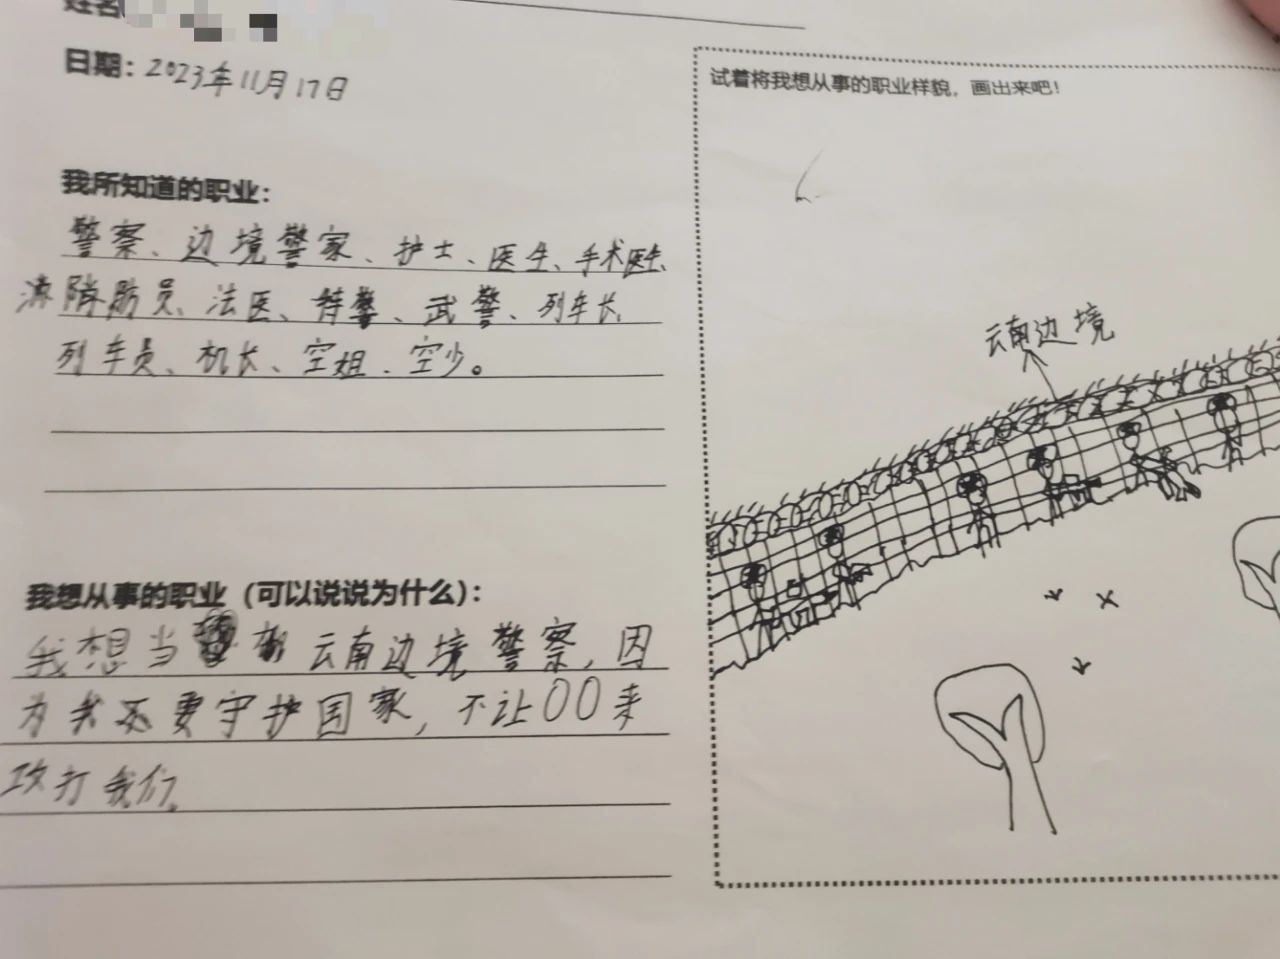 姓名
日期：2023年11月17日
我所知道的职业：
警察、边境警家、护士、医生、手术医生、
消防员、法医、特警、武警、列车长、
列车员、机长、空姐、空少。
我想从事的职业（可以说说为什么）：
我想当云南边境警察，因
为我还要守护国家，不让OO来
攻打我们。
试着将我想从事的职业样貌，画出来吧！
云南边境